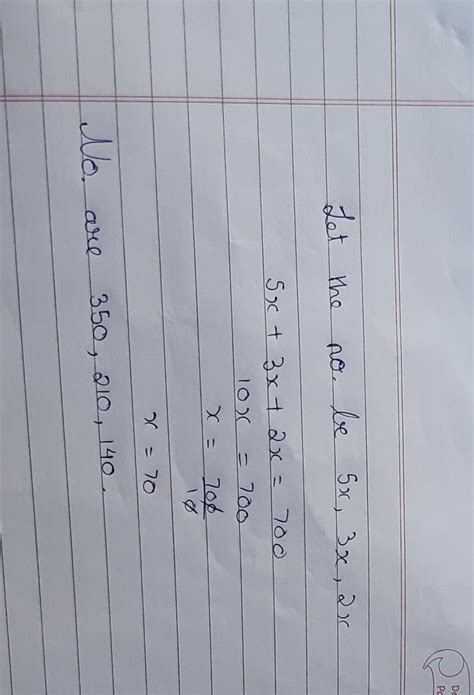 Let the no. be 5x, 3x, 2x
5x + 3x + 2x = 700
10x = 700
x = 700
10
x = 70
No. are 350, 210, 140.